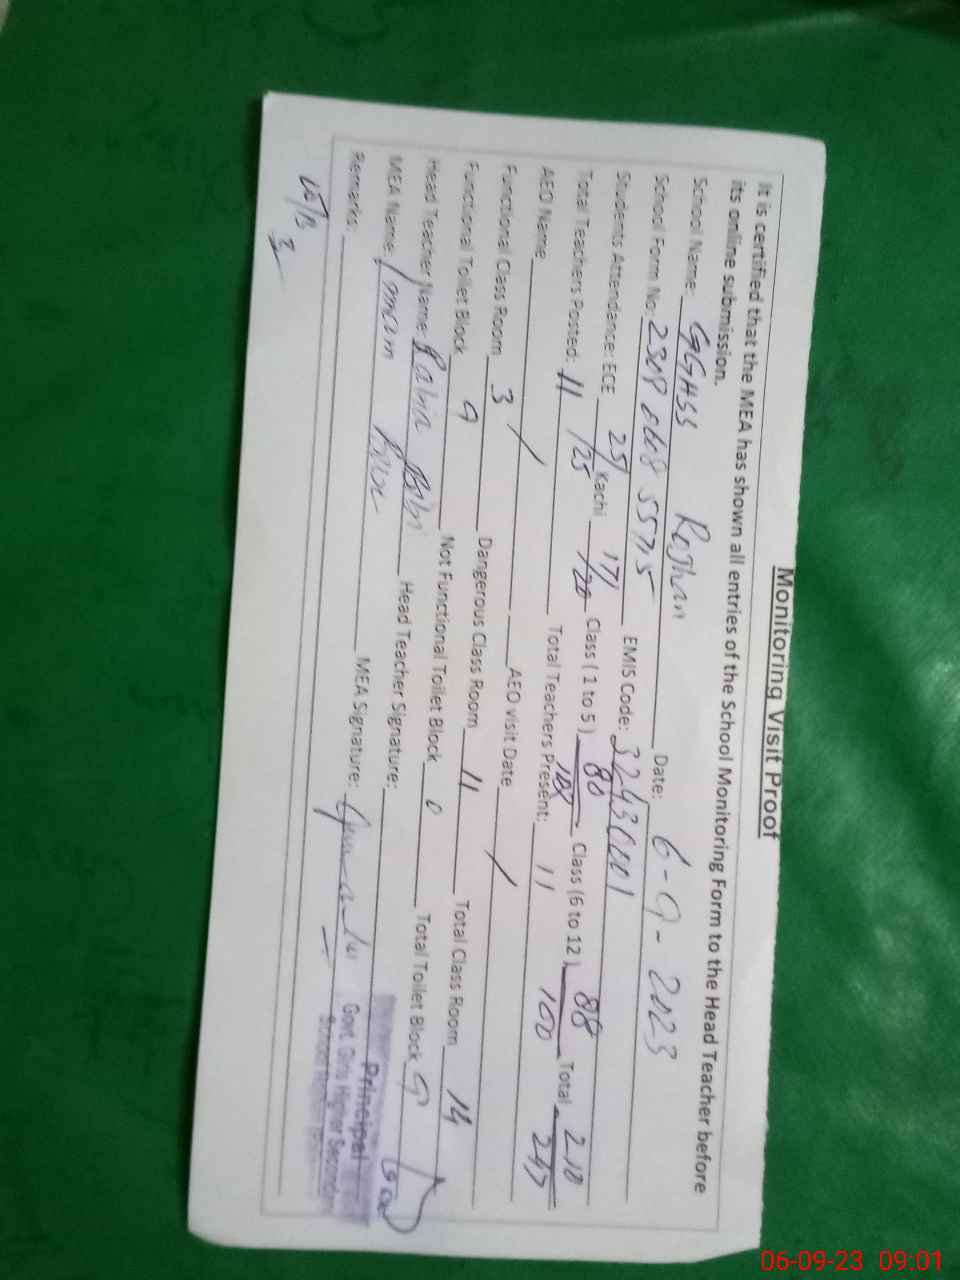 Monitoring Visit Proof
It is certified that the MEA has shown all entries of the School Monitoring Form to the Head Teacher before
its online submission.
School Name: GGHSS Rojhan Date: 6-9-2023
School Form No: 2309 EMIS Code: 32430001
Students Attendance: ECE 25/25 Kachi 17/20 Class ( 1 to 5 ) 80/102 Class (6 to 12 ) 88/100 Total 210/247
Total Teachers Posted: 11 Total Teachers Present: 11
AEO Name / AEO visit Date /
Functional Class Room 3 Dangerous Class Room 11 Total Class Room 14
Functional Toilet Block 9 Not Functional Toilet Block 0 Total Toilet Block 9
Head Teacher Name: Rabia Bibi Head Teacher Signature:
MEA Name: Imam Bux MEA Signature:
Remarks:
Principal
Govt. Girls Higher Secondary
School
06-09-23 09:01